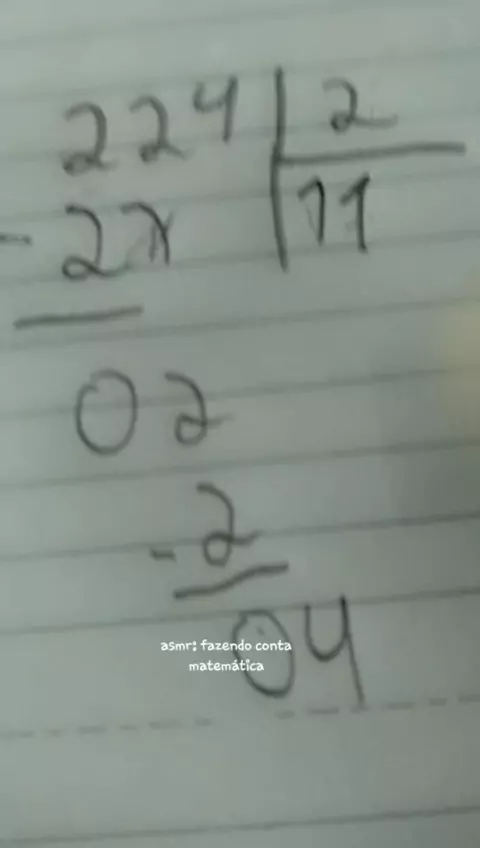 224 | 2
- 2 x | 11
02
- 2
04
asmr: fazendo conta
matemática